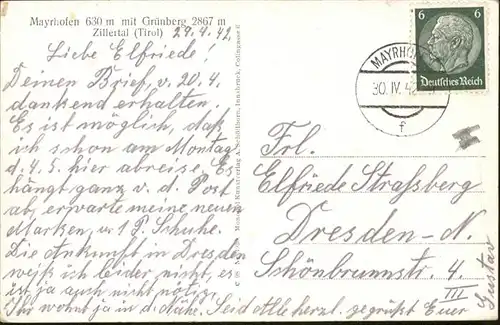 Mayrhofen 630 m mit Grünberg 2867 m
Zillertal (Tirol)
29.4.42.
Liebe Elfriede!
Deinen Brief, v. 20.4.
dankend erhalten.
Es ist möglich, daß
ich schon am Montag
d. 4.5. hier abreise. Es
hängt ganz v. d. Post
ab, erwarte meine neuen
Marken, u 1 P. Schuhe.
Die Ankunft in Dresden
weiß ich leider nicht, es
ist ja auch nicht nötig,
Ihr wohnt ja in d. Nähe. Seid Alle herzl. gegrüßt Euer
Gustav
6 6
Deutsches Reich
MAYRHO
30. IV. 42
f
Frl.
Elfriede Strassberg
Dresden-N.
Schönbrunnstr. 4.
III